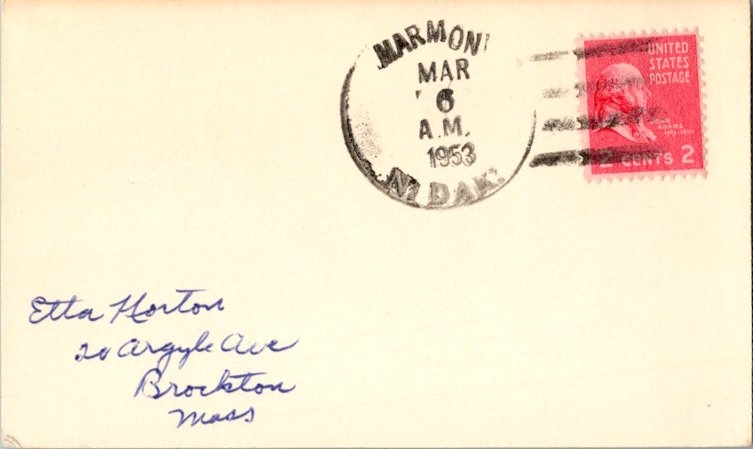 MARMON
MAR
6
A.M.
1953
N. DAK.
UNITED
STATES
POSTAGE
JOHN
ADAMS
2 CENTS 2
Etta Horton
20 Argyle Ave
Brockton
Mass